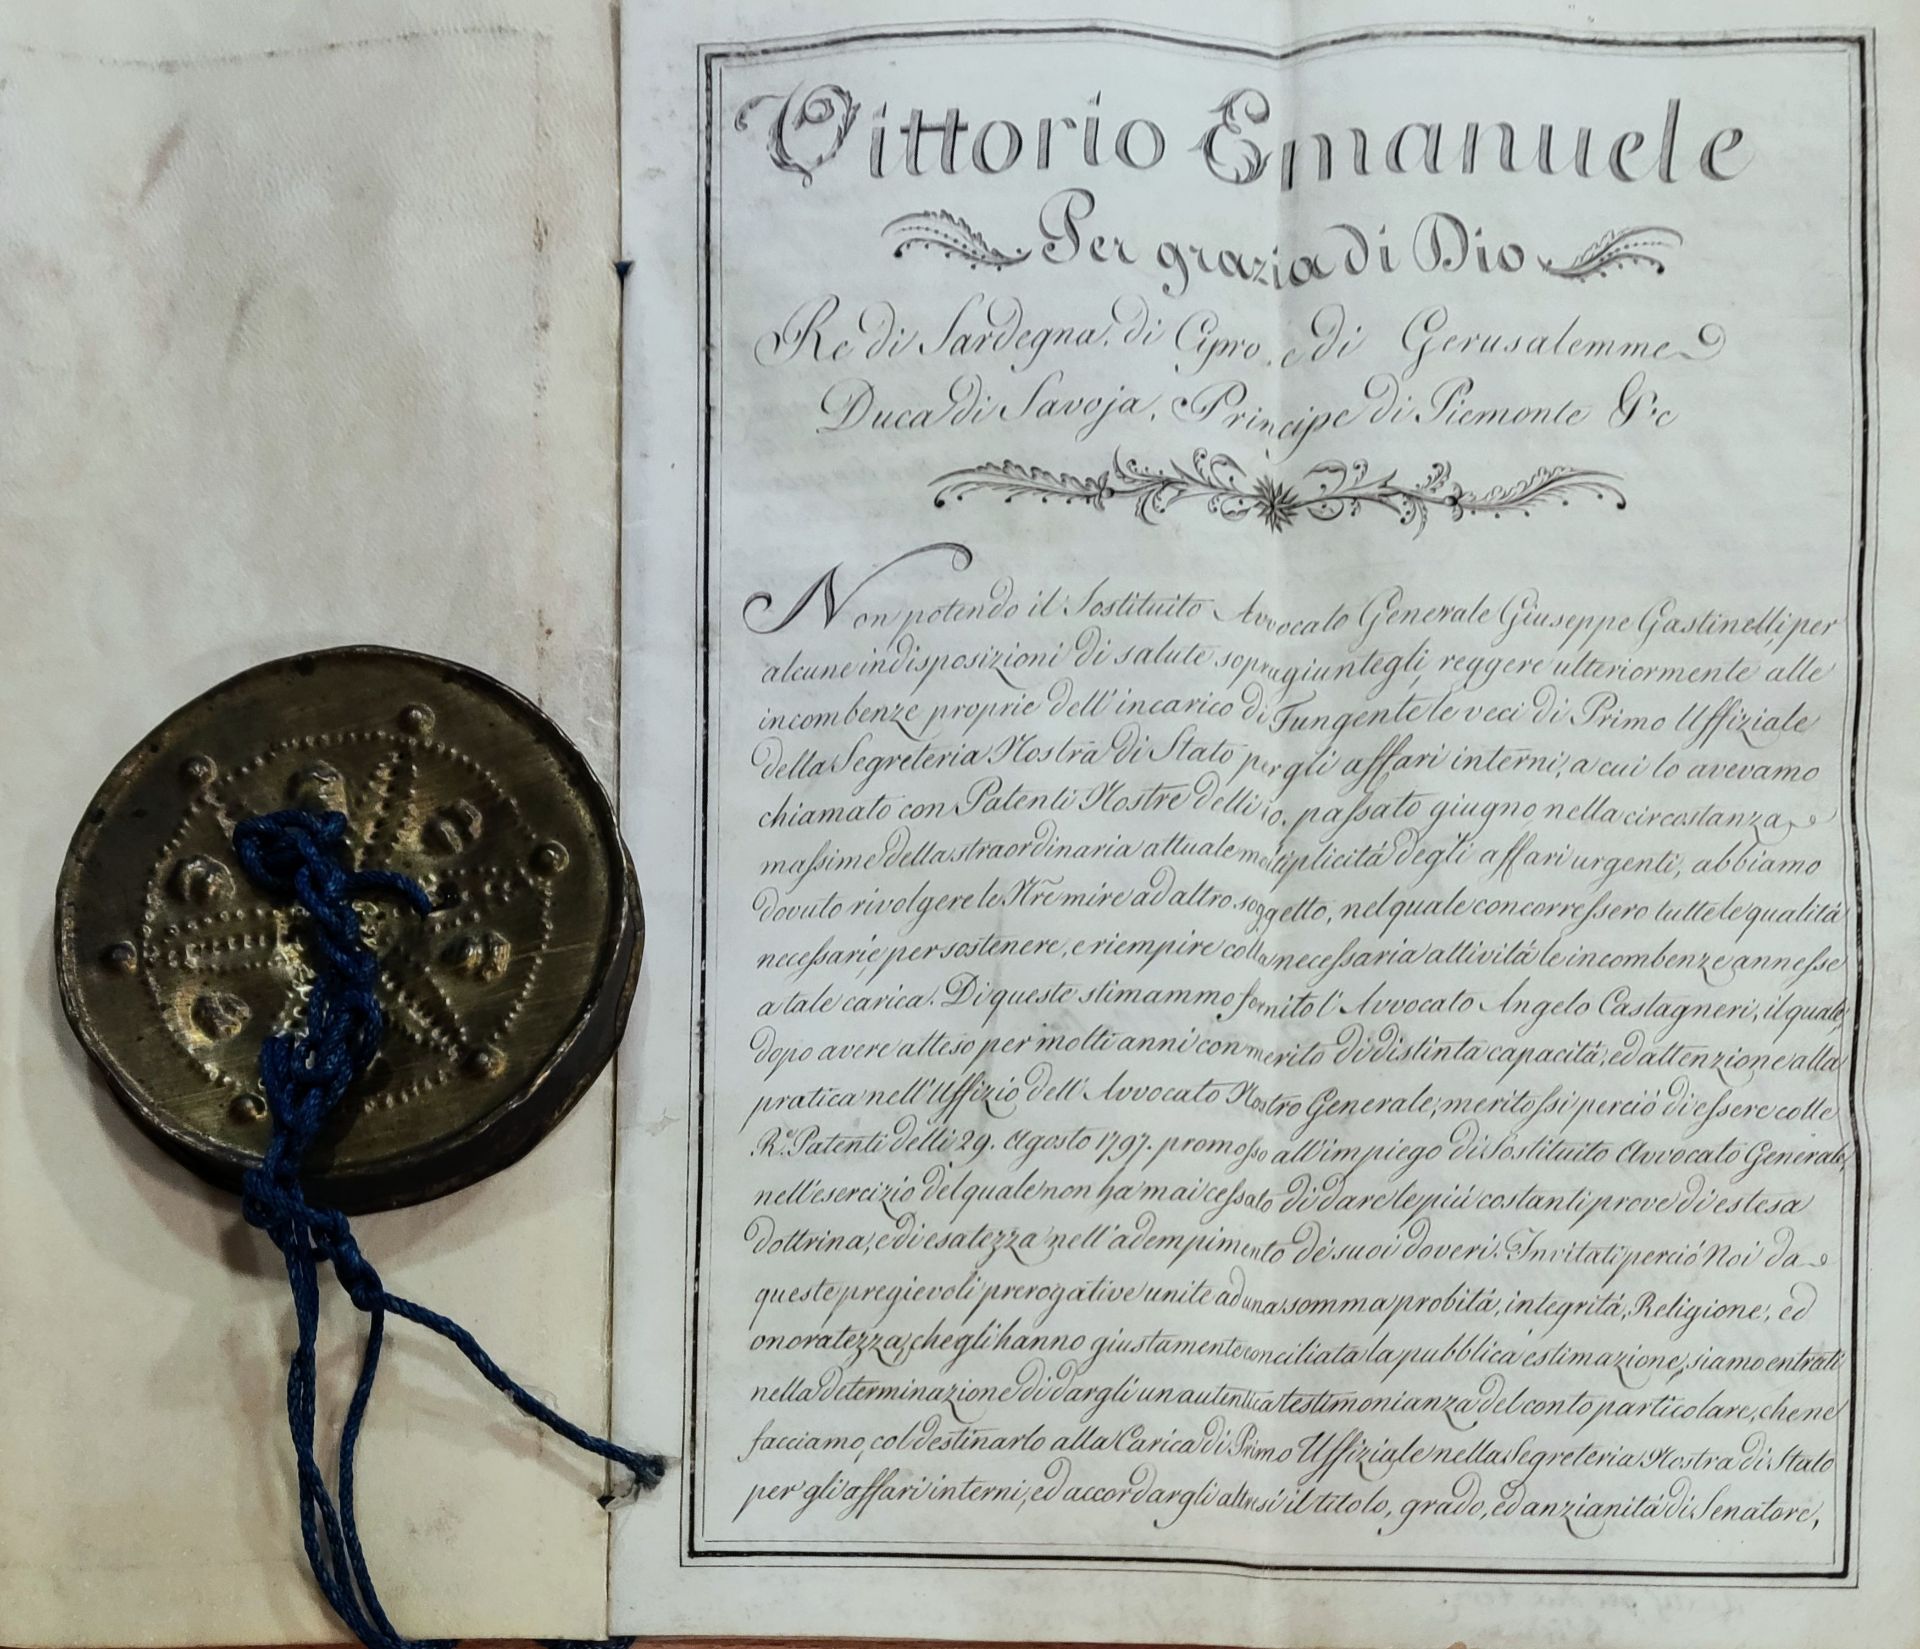 Vittorio Emanuele
Per grazia di Dio
Re di Sardegna, di Cipro, e di Gerusalemme
Duca di Savoja, Principe di Piemonte &c
Non potendo il Sostituito Avvocato Generale Giuseppe Gastinelli, per
alcune indisposizioni di salute sopragiuntegli, reggere ulteriormente alle
incombenze proprie dell'incarico di Fungente le veci di Primo Uffiziale
della Segreteria Nostra di Stato per gli affari interni, a cui lo avevamo
chiamato con Patenti Nostre delli 10. passato giugno nella circostanza
massime della straordinaria attuale moltiplicitá degli affari urgenti, abbiamo
dovuto rivolgere le Nre mire ad altro soggetto, nel quale concorressero tutte le qualitá
necessarie per sostenere, e riempire colla necessaria attivitá le incombenze annesse
a tale carica. Di queste stimammo fornito l'Avvocato Angelo Castagneri, il quale,
dopo avere atteso per molti anni con merito di distinta capacitá, ed attenzione alla
pratica nell'Uffizio dell'Avvocato Nostro Generale, meritossi perció di essere colle
Re. Patenti delli 29. Agosto 1797. promosso all'impiego di Sostituito Avvocato Generale,
nell'esercizio del quale non ha mai cessato di dare le piú costanti prove di estesa
dottrina, e di esatezza nell'adempimento dé suoi doveri. Invitati perció Noi da
queste pregievoli prerogative unite ad una somma probitá, integritá, Religione, ed
onoratezza, che gli hanno giustamente conciliata la pubblica estimazione, siamo entrati
nella determinazione di dargli un autentica testimonianza del conto particolare, che ne
facciamo, col destinarlo alla Carica di Primo Uffiziale nella Segreteria Nostra di Stato
per gli affari interni, ed accordargli altresí il titolo, grado, ed anzianitá di Senatore,